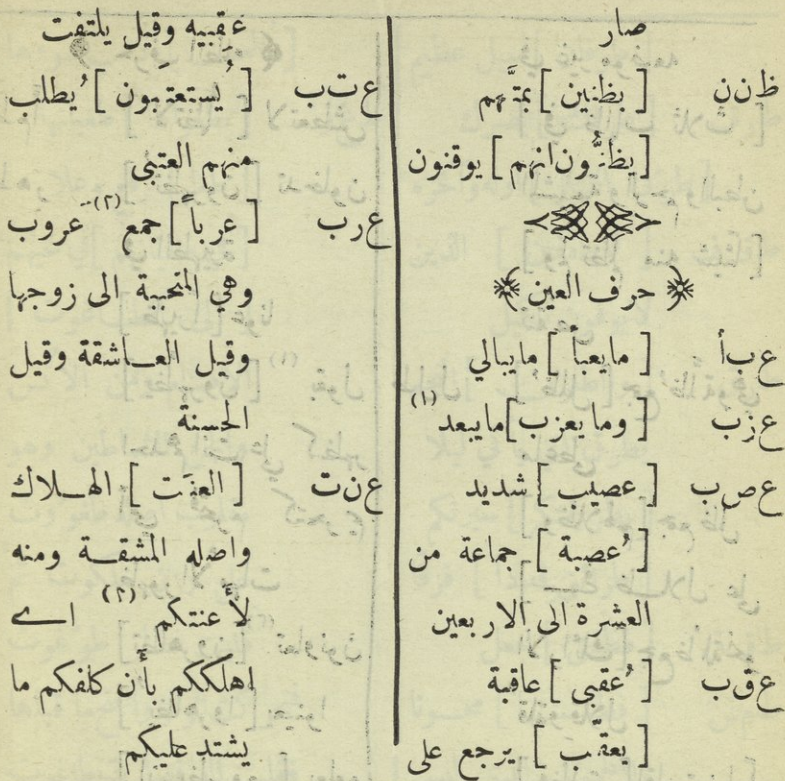 صار
ظ ن ن [ بظنين ] بمتَّهم
[ يظنُّون انهم ] يوقنون
﴿ حرف العين ﴾
ع ب أ [ ما يعبأ ] ما يبالي
ع ز ب [ وما يعزب ] ما يبعد (١)
ع ص ب [ عصيب ] شديد
[ عُصبة ] جماعة من
العشرة الى الاربعين
ع ق ب [ عُقبى ] عاقبة
[ يعقّب ] يرجع على
عقبيه وقيل يلتفت
ع ت ب [ يُستعتَبون ] يُطلب
منهم العتبى
ع ر ب [ عرباً ] جمع (٢) عَروب
وهي المتحببة الى زوجها
وقيل العاشقة وقيل
الحسنة
ع ن ت [ العنَت ] الهلاك
واصله المشقة ومنه
لأَعنتكم (٢) اے
اهلككم بأن كلفكم ما
يشتد عليكم